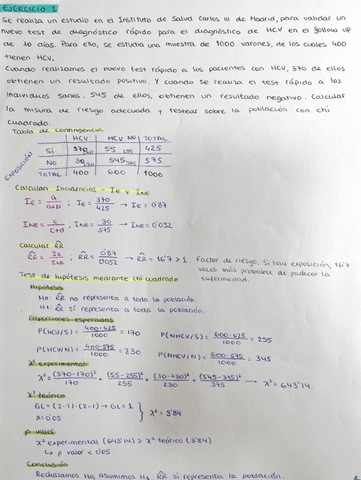 EJERCICIO 1
Se realiza un estudio en el Instituto de Salud Carlos III de Madrid, para validar un
nuevo test de diagnóstico rápido para el diagnóstico de HCV en el follow up
de 10 años. Para ello, se estudia una muestra de 1000 varones, de los cuales 400
tienen HCV.
Cuando realizamos el nuevo test rápido a los pacientes con HCV, 370 de ellos
obtienen un resultado positivo. Y cuando se realiza el test rápido a los
individuos sanos, 545 de ellos, obtienen un resultado negativo. Calcular
la medida de riesgo adecuada y testear sobre la población con chi
cuadrado.
Tabla de contingencia
HCV HCV NO TOTAL
EXPOSICIÓN
SI 370 55 255 425
NO 30 230 545 345 575
TOTAL 400 600 1000
Calcular Incidencias - IE y INE
IE = a/a+b ; IE = 370/425 → IE = 0'87
INE = c/c+d , INE = 30/575 → INE = 0'052
Calcular RR
RR = IE/INE , RR = 0'87/0'052 → RR = 16'7 > 1. Factor de riesgo. Si hay exposición, 16'7
veces más probable de padecer la
enfermedad.
Test de hipótesis mediante chi cuadrado
Hipótesis
H0: RR no representa a toda la población.
H1: RR sí representa a toda la población.
Proporciones esperadas
P(HCV/S) = 400·425/1000 = 170 P(NHCV/S) = 600·425/1000 = 255
P(HCV/N) = 400·575/1000 = 230 P(NHCV/N) = 600·575/1000 = 345
X² experimental
X² = (370-170)²/170 + (55-255)²/255 + (30-230)²/230 + (545-345)²/345 → X² = 643'14.
X² teórico
GL = (2-1)·(2-1) → GL = 1
α = 0'05
X² = 3'84
p valor
X² experimental (643'14) > X² teórico (3'84)
↳ p valor < 0'05
Conclusión
Rechazamos H0, asumimos H1. RR sí representa la población.